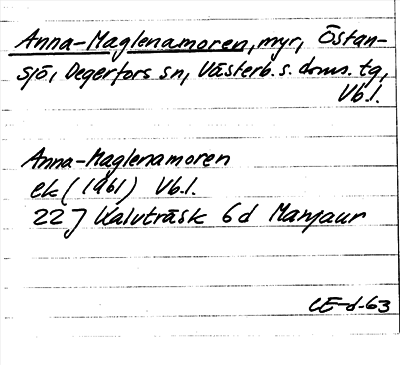 Anna-Maglenamoren, myr, Östan-
sjö, Degerfors sn, Västerb. s. doms. tg,
Vb.l.
Anna-Maglenamoren
ek (1961) Vb.l.
22 J Kalvträsk 6 d Manjaur
CE-d-63